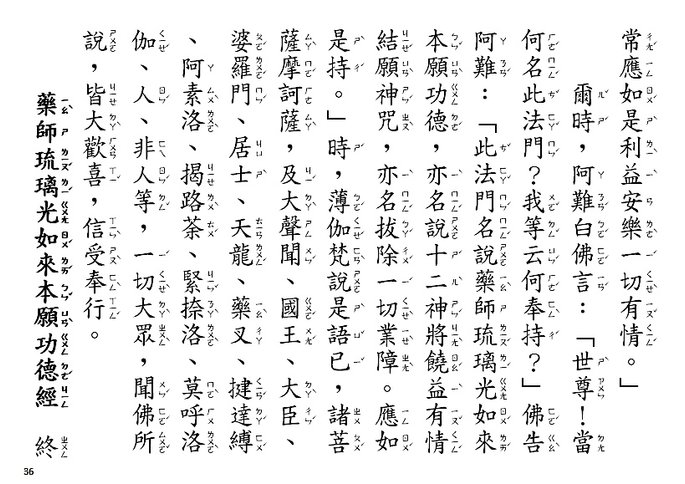 常應如是利益安樂一切有情。」
爾時，阿難白佛言：「世尊！當
何名此法門？我等云何奉持？」佛告
阿難：「此法門名說藥師琉璃光如來
本願功德，亦名說十二神將饒益有情
結願神咒，亦名拔除一切業障。應如
是持。」時，薄伽梵說是語已，諸菩
薩摩訶薩，及大聲聞、國王、大臣、
婆羅門、居士、天龍、藥叉、揵達縛
、阿素洛、揭路荼、緊捺洛、莫呼洛
伽、人、非人等，一切大眾，聞佛所
說，皆大歡喜，信受奉行。
藥師琉璃光如來本願功德經　終
36